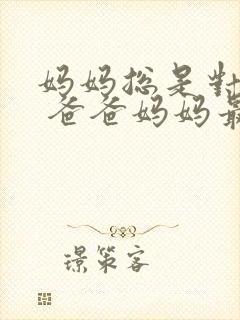 妈妈总是對
爸爸妈妈最
璟策客